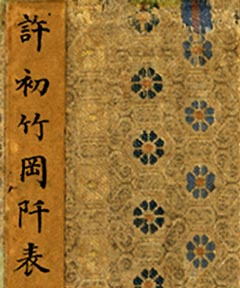 許初竹岡阡表